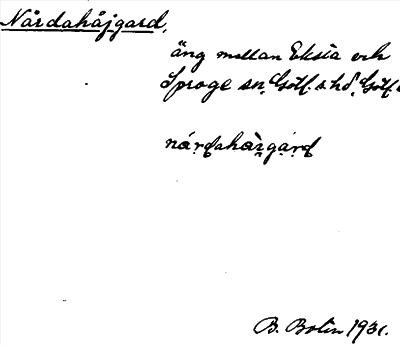 Nårdahåjgard,
äng mellan Eksta och
Sproge sn, Gotl. s. hd, Gotl.
nárdahàrgárd
B. Bolin 1931.